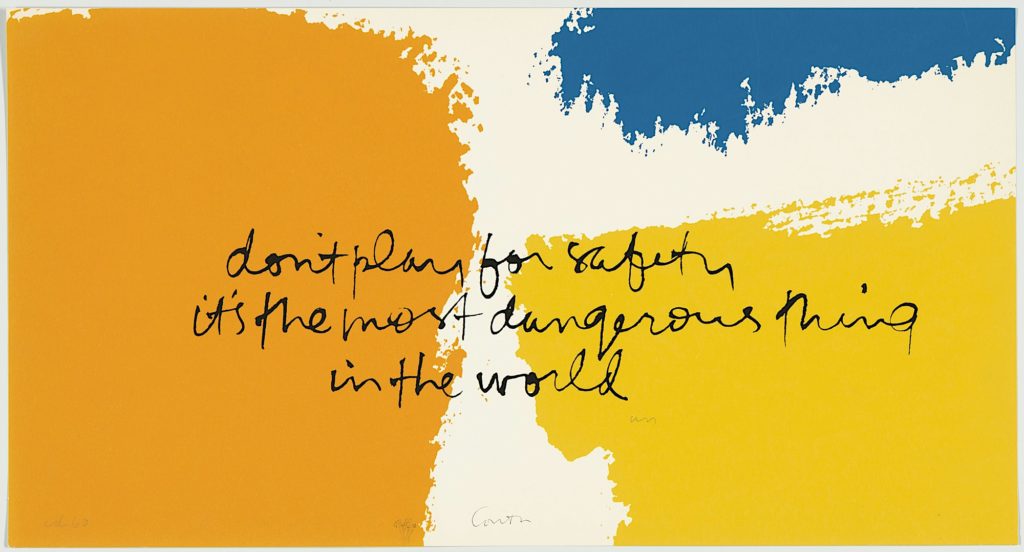 don't play for safety
it's the most dangerous thing
in the world